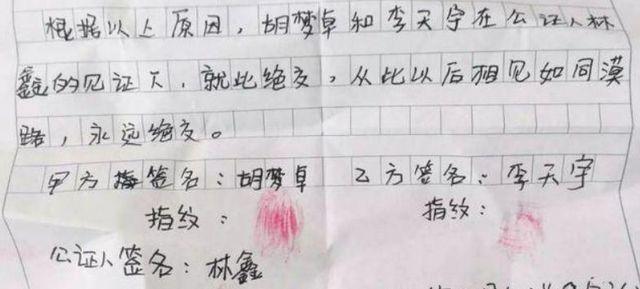 根据以上原因，胡梦卓和李天宇在公证人林
鑫的见证下，就此绝交，从此以后相见如同漠
路，永远绝交。
甲方签名：胡梦卓 乙方签名：李天宇
指纹： 指纹：
公证人签名：林鑫